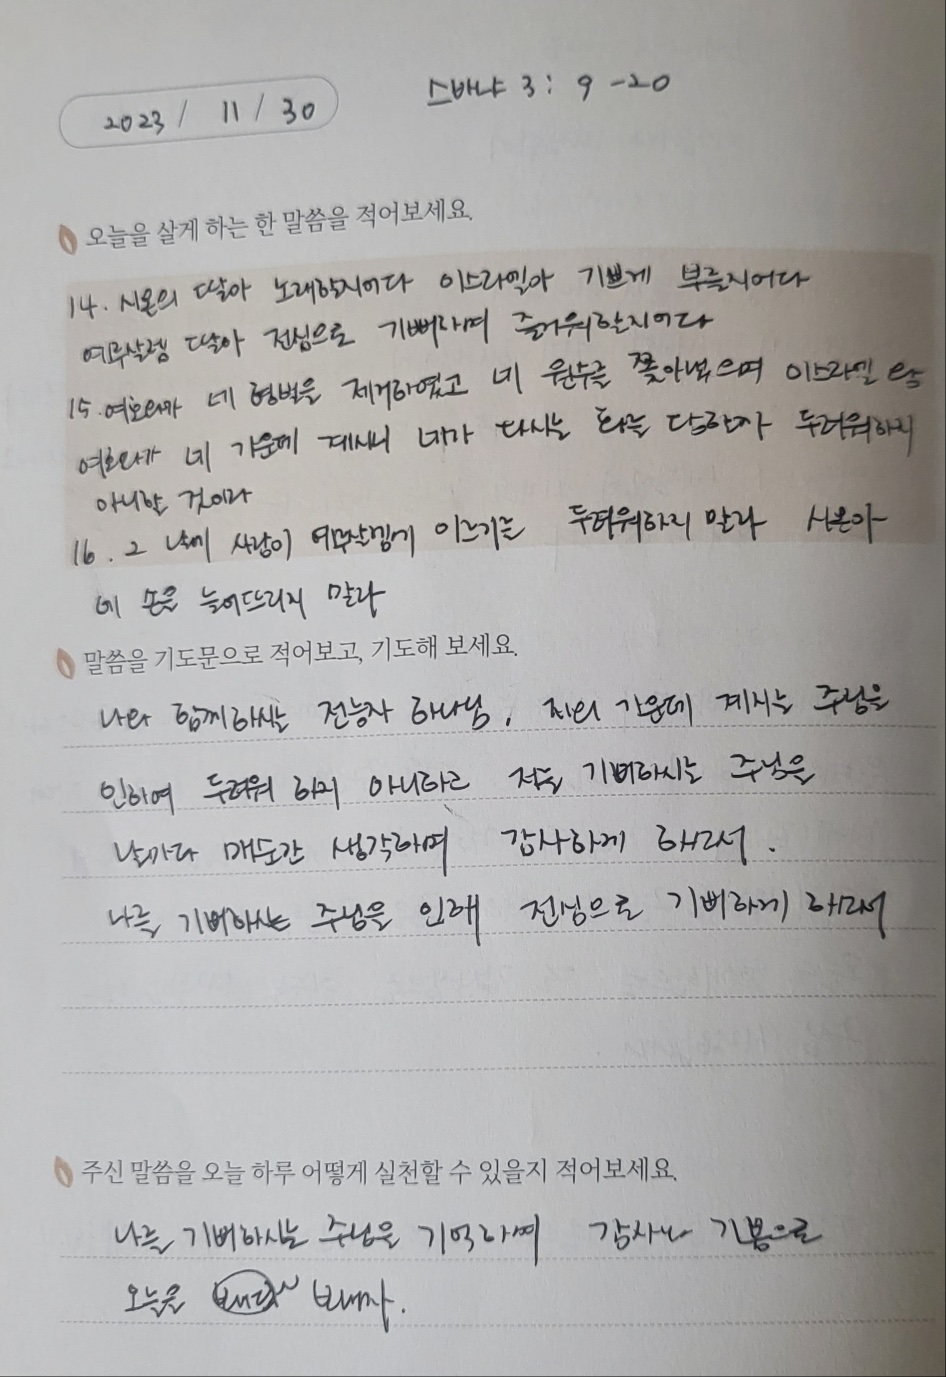 2023 / 11 / 30
스바냐 3: 9 -20
오늘을 살게 하는 한 말씀을 적어보세요.
14. 시온의 딸아 노래할지어다 이스라엘아 기쁘게 부를지어다
예루살렘 딸아 전심으로 기뻐하며 즐거워할지어다
15. 여호와가 네 형벌을 제거하였고 네 원수를 쫓아냈으며 이스라엘 왕
여호와가 네 가운데 계시니 네가 다시는 화를 당할까 두려워하지
아니할 것이라
16. 그 날에 사람이 예루살렘에 이르기를 두려워하지 말라 시온아
네 손을 늘어뜨리지 말라
말씀을 기도문으로 적어보고, 기도해 보세요.
나와 함께하시는 전능자 하나님, 저의 가운데 계시는 주님을
인하여 두려워 하지 아니하고 저를 기뻐하시는 주님을
날마다 매순간 생각하며 감사하게 하소서.
나를 기뻐하시는 주님을 인해 전심으로 기뻐하게 하소서
주신 말씀을 오늘 하루 어떻게 실천할 수 있을지 적어보세요.
나를 기뻐하시는 주님을 기억하며 감사와 기쁨으로
오늘을 보내자.